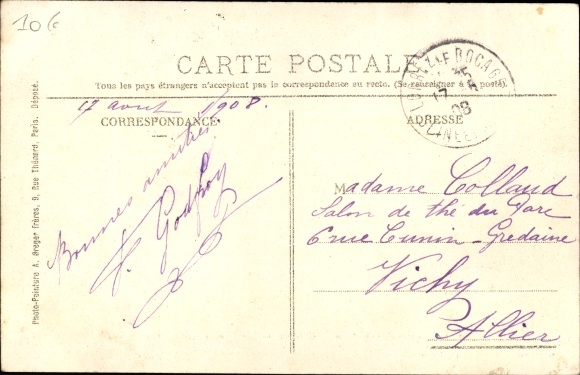 106
CARTE POSTALE
Tous les pays étrangers n'acceptent pas la correspondance au recto. (Se renseigner à la poste).
17 août 1908.
CORRESPONDANCE
ADRESSE
Bonnes amitiés
Godfroy
Madame Colland
Salon de thé du Parc
6 rue Cunin-Gredaine
Vichy
Allier
Photo-Peinture A. Breger Frères, 9, Rue Thénard, Paris. Déposé.
BOCAGE
17
08